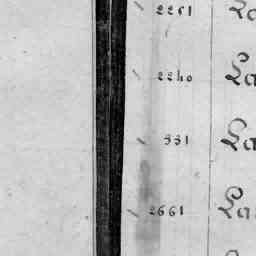 2261 La
2240 La
331 La
2661 La